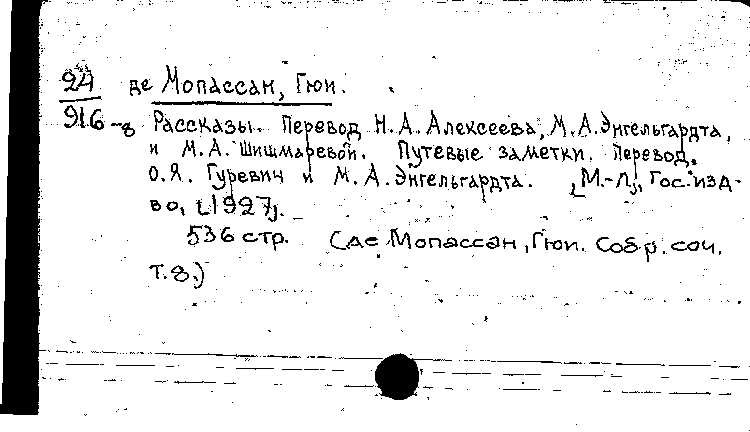 24 де Мопассан, Гюи.
916-8 Рассказы. Перевод Н.А. Алексеева, М.А. Энгельгардта,
и М.А. Шишмаревой. Путевые заметки. Перевод.
О.Я. Гуревич и М.А. Энгельгардта. [М.-Л], Гос. изд-
во, [1927].
536 стр. (де Мопассан, Гюи. Собр. соч.
т.8.)